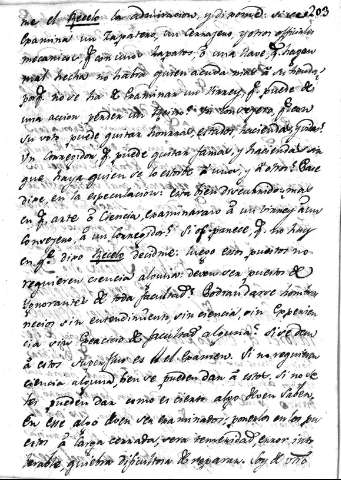 203
me el Recelo la admiracion, y di normd. si se
Examina un Zapatero, un Cerragero, y otros officiales
mecanicos, q con unos Zapatos, ò una llave q hagan
mal hecha no habra quien acuda mas à su tienda,
paq no se ha de Examinar un Virrey, q puede de
una accion perder un Reino? Un Consejero, q con
su voto puede quitar honrras, estados, haciendas, y vidas?
Un Corregidor q puede quitar famas, y haciendas sin
que haya quien se lo estorbe à unos, y à otros? Pase
dige, en la especulacion: esta bien discurrido: mas
en q arte ò Ciencia, Examinaran à un Virrey à un
Consejero, à un Corregidor? Si os parece, q no hay
en q dijo Recelo decidme: luego estos puestos no
requieren ciencia alguna: deven ser puestos de
Ignorantes de toda facultad? Podran darse hombres
necios sin entendimiento sin ciencia, sin Experien
cia sin facultad alguna? Si se dan
à estos superfluo es el Examen. Si no requieren
ciencia alguna bien se pueden dan à estos: si no se
les pueden dar como es cierto algo deven saber,
En ese algo deven ser examinados; ponerlos en los pu
estos à larga cerrada, sera temeridad, error into
lerable quiebra dificultosa de reparar. Soy de vro